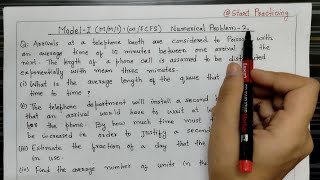 @Start Practicing
Model-I (M/M/1):(∞/FCFS) Numerical Problem-2
Q: Arrivals at a telephone booth are considered to Poisson with
an average time of 10 minutes between one arrival & the
next. The length of a phone call is assumed to be distributed
exponentially with mean three minutes.
(i) What is the average length of the queue that
time to time?
(ii) The telephone department will install a second
that an arrival would have to wait at
for the phone. By how much time must
be increased in order to justify a second
(iii) Estimate the fraction of a day that the
in use.
(iv) Find the average number of units in the